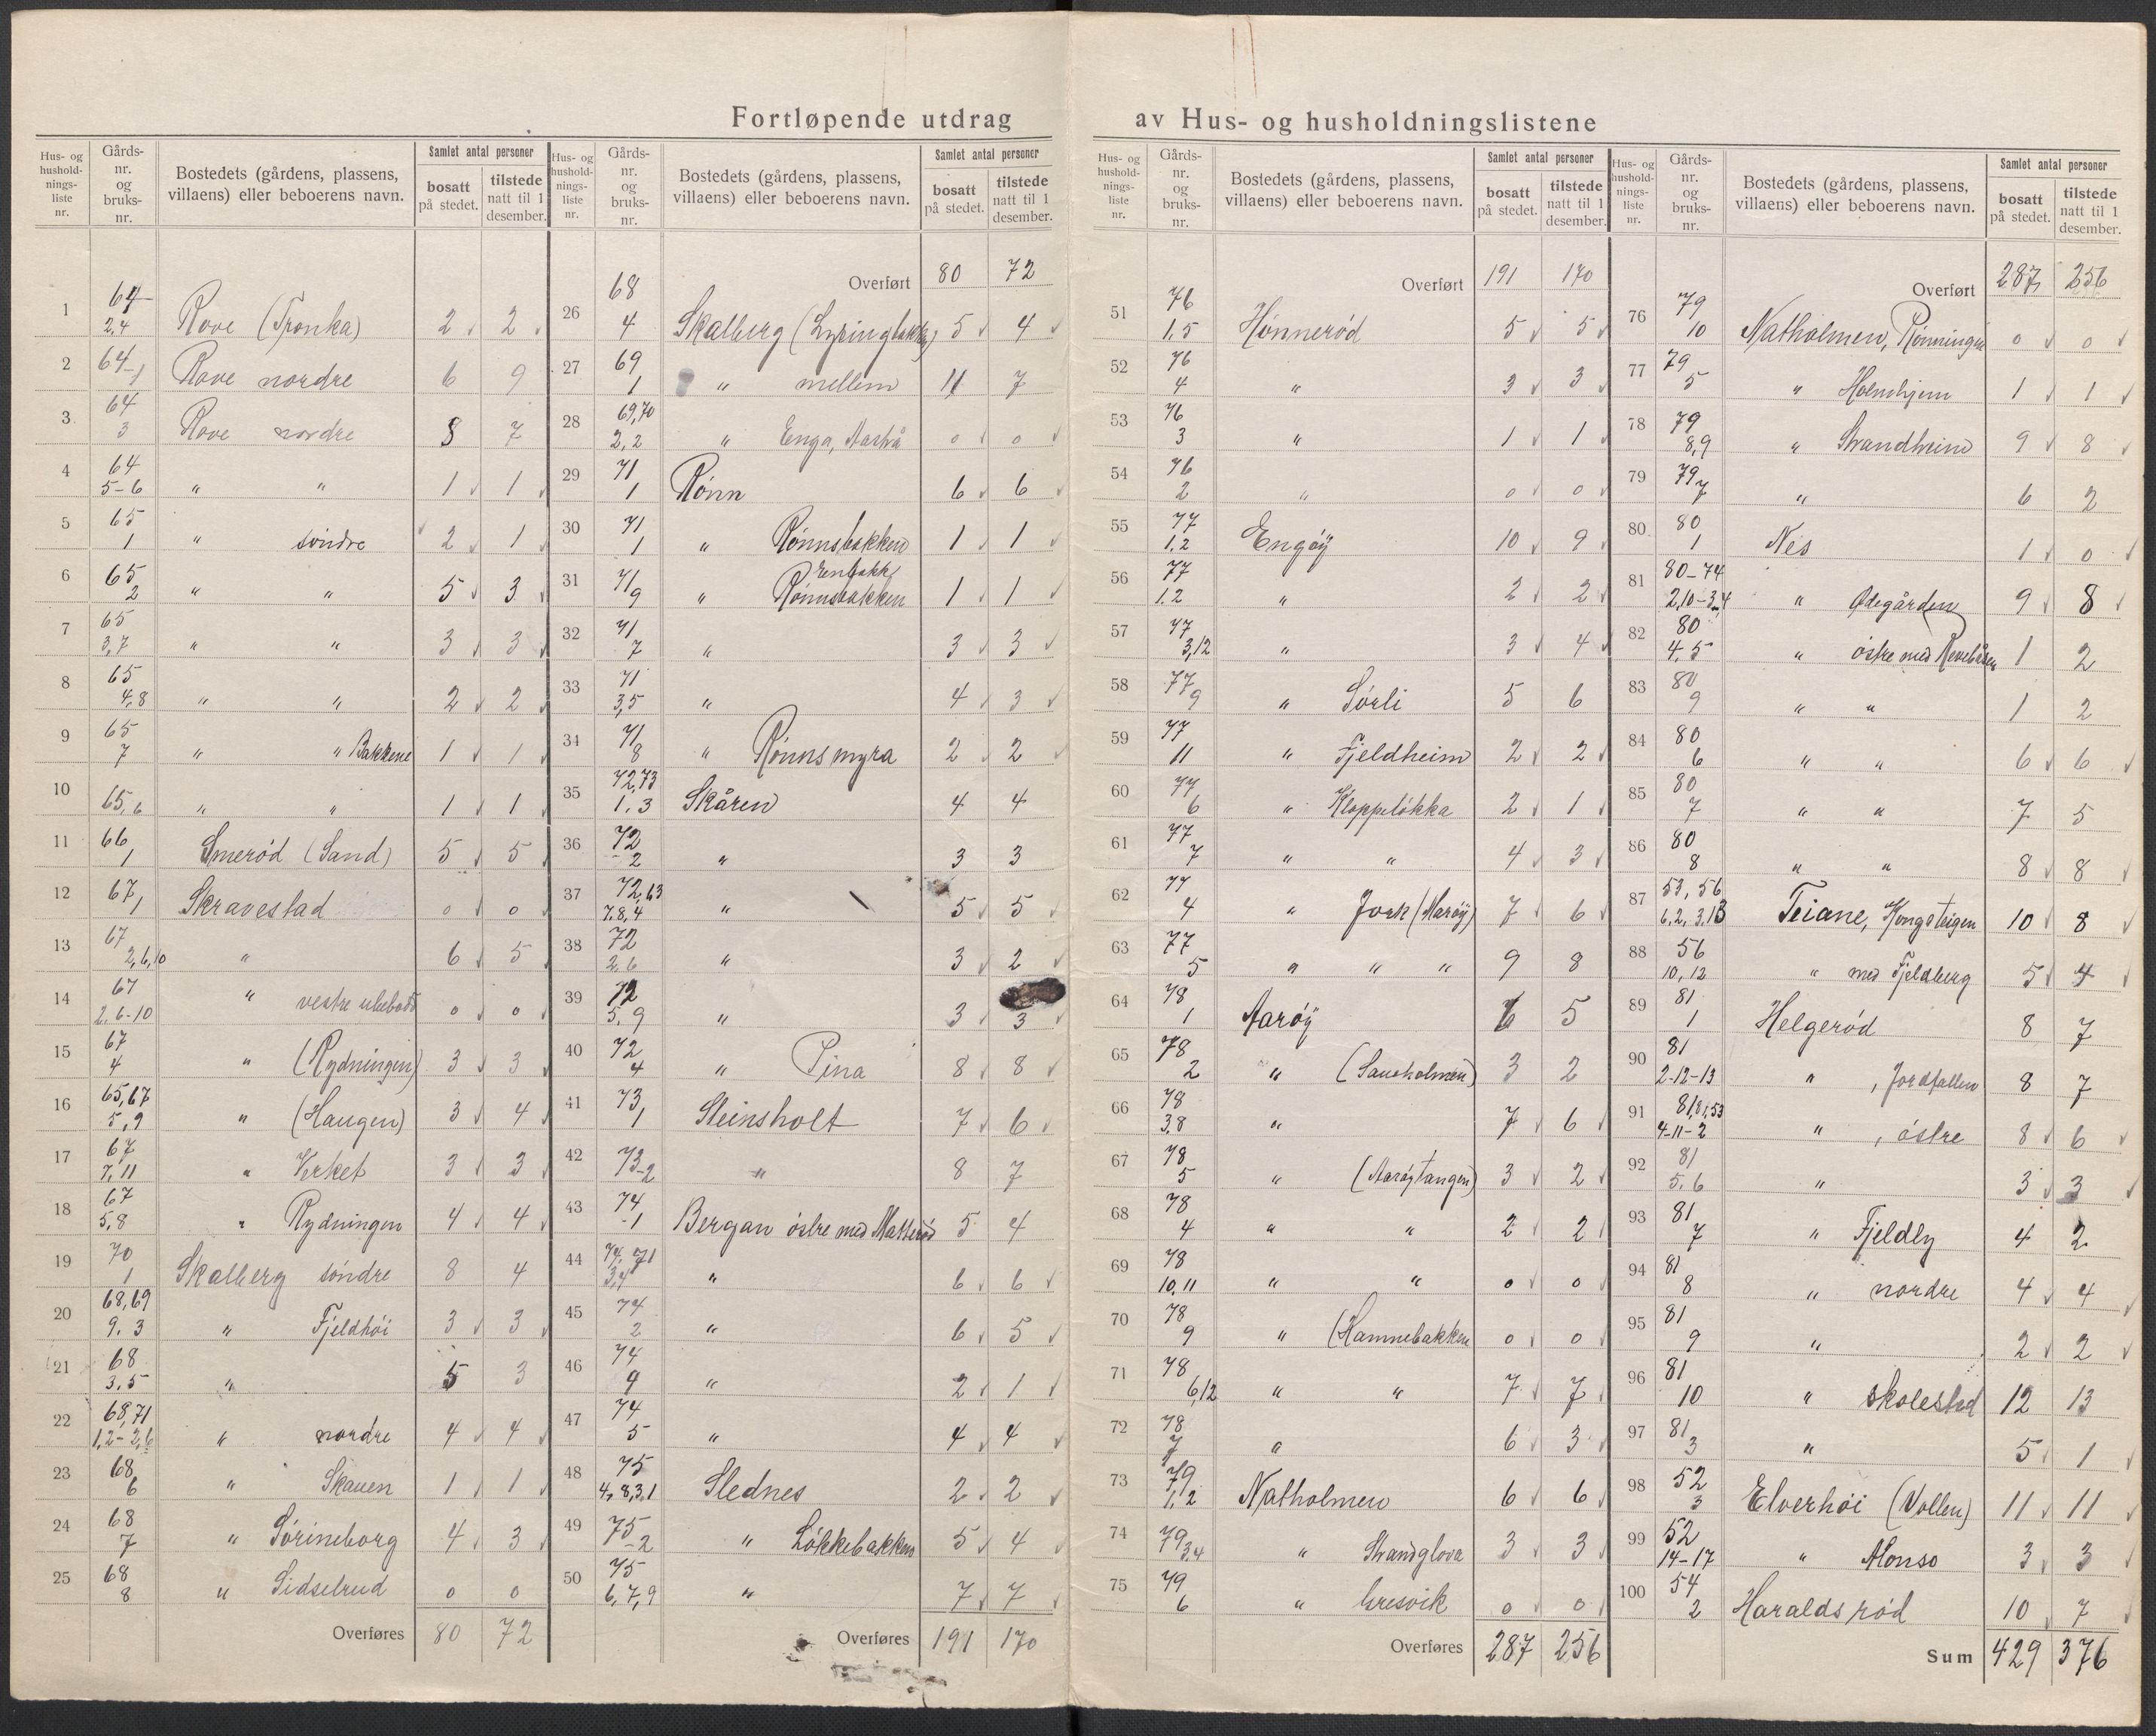 Fortløpende utdrag av Hus- og husholdningslistene
Hus- og hushold-nings-liste nr. | Gårds-nr. og bruks-nr. | Bostedets (gårdens, plassens, villaens) eller beboerens navn. | Samlet antal personer | bosatt på stedet. | tilstede natt til 1 desember.
1 | 64 2,4 | Rove (Tronka) | 2 | 2
2 | 64-1 | Rove nordre | 6 | 9
3 | 64 3 | Rove nordre | 8 | 7
4 | 64 5-6 | " " | 1 | 1
5 | 65 1 | " söndre | 2 | 1
6 | 65 2 | " " | 5 | 3
7 | 65 3,7 | " " | 3 | 3
8 | 65 4,8 | " " | 2 | 2
9 | 65 7 | " " Bakkene | 1 | 1
10 | 65,6 | " " | 1 | 1
11 | 66,1 | Smerød (Sand) | 5 | 5
12 | 67,1 | Skravestad | 0 | 0
13 | 67 2,6,10 | " | 6 | 5
14 | 67 2.6-10 | " vestre ubebodd | 0 | 0
15 | 67 4 | " (Rydningen) | 3 | 3
16 | 65,67 5,9 | " (Haugen) | 3 | 4
17 | 67 7,11 | " Verket | 3 | 3
18 | 67 5,8 | " Rydningen | 4 | 4
19 | 70 1 | Skalberg söndre | 8 | 4
20 | 68,69 9.3 | " Fjeldhöi | 3 | 3
21 | 68 3.5 | " | 5 | 3
22 | 68,71 1,2-2,6 | " nordre | 4 | 4
23 | 68 6 | " Skauen | 1 | 1
24 | 68 7 | " Sörineborg | 4 | 3
25 | 68 8 | " Sidselrud | 0 | 0
Overføres | 80 | 72
Hus- og hushold-nings-liste nr. | Gårds-nr. og bruks-nr. | Bostedets (gårdens, plassens, villaens) eller beboerens navn. | Samlet antal personer | bosatt på stedet. | tilstede natt til 1 desember.
Overført | 80 | 72
26 | 68 4 | Skalberg | 5 | 4
27 | 69 1 | " mellem | 11 | 7
28 | 69,70 2,2 | " Enga, | 0 | 0
29 | 71 1 | Rönn | 6 | 6
30 | 71 1 | " Rönnsbakken | 1 | 1
31 | 71 9 | " Rönnsbakken | 1 | 1
32 | 71 7 | " | 3 | 3
33 | 71 3,5 | " | 4 | 3
34 | 71 8 | " Rönnsmyra | 2 | 2
35 | 72,73 1.3 | Skåren | 4 | 4
36 | 72 -2 | " | 3 | 3
37 | 72,63 7,8,4 | " | 5 | 5
38 | 72 2,6 | " | 3 | 2
39 | 72 5,9 | " | 3 | 3
40 | 72 4 | " Pina | 8 | 8
41 | 73 1 | Steinsholt | 7 | 6
42 | 73-2 | " | 8 | 7
43 | 74 -1 | Bergan östre med Matterød | 5 | 4
44 | 74,71 3,4 | " | 6 | 6
45 | 74 2 | " | 6 | 5
46 | 74 9 | " | 2 | 1
47 | 74 5 | " | 4 | 4
48 | 75 4,8,3,1 | Slednes | 2 | 2
49 | 75-2 | " Lökkebakken | 5 | 4
50 | 75 6,7,9 | " | 7 | 7
Overføres | 191 | 170
Hus- og hushold-nings-liste nr. | Gårds-nr. og bruks-nr. | Bostedets (gårdens, plassens, villaens) eller beboerens navn. | Samlet antal personer | bosatt på stedet. | tilstede natt til 1 desember.
Overført | 191 | 170
51 | 76 1,5 | Hönnerød | 5 | 5
52 | 76 4 | " | 3 | 3
53 | 76 3 | " | 1 | 1
54 | 76 2 | " | 0 | 0
55 | 77 1.2 | Engöy | 10 | 9
56 | 77 1.2 | " | 2 | 2
57 | 77 3,12 | " | 3 | 4
58 | 77 9 | " Sörli | 5 | 6
59 | 77 11 | " Fjeldheim | 2 | 2
60 | 77 6 | " Kloppelökka | 2 | 1
61 | 77 7 | " " | 4 | 3
62 | 77 4 | " Jork (Aaröy) | 7 | 6
63 | 77 5 | " " " | 9 | 8
64 | 78 1 | Aaröy | 6 | 5
65 | 78 2 | " (Saueholmen) | 3 | 2
66 | 78 3.8 | " | 7 | 6
67 | 78 5 | " (Aaröytangen) | 3 | 2
68 | 78 4 | " " | 2 | 2
69 | 78 10,11 | " " | 0 | 0
70 | 78 9 | " (Hamnebakken | 0 | 0
71 | 78 6,12 | " " | 7 | 7
72 | 78 7 | " | 6 | 3
73 | 79 1,2 | Natholmen | 6 | 6
74 | 79 3,4 | " Strandglova | 3 | 3
75 | 79 6 | " Uresvik | 0 | 0
Overføres | 287 | 256
Hus- og hushold-nings-liste nr. | Gårds-nr. og bruks-nr. | Bostedets (gårdens, plassens, villaens) eller beboerens navn. | Samlet antal personer | bosatt på stedet. | tilstede natt til 1 desember.
Overført | 287 | 256
76 | 79 10 | Natholmen, Rönningen | 0 | 0
77 | 79 5 | " Holmhjem | 1 | 1
78 | 79 8,9 | " Strandheim | 9 | 8
79 | 79 7 | " | 6 | 2
80 | 80 1 | Nes | 1 | 0
81 | 80-74 2,10-3,4 | " Ødegården | 9 | 8
82 | 80 4,5 | " östre med Revebåsen | 1 | 2
83 | 80 9 | " " | 1 | 2
84 | 80 6 | " " | 6 | 6
85 | 80 7 | " " | 7 | 5
86 | 80 8 | " " | 8 | 8
87 | 53,56 6,2,3,13 | Teiane, Kongsteigen | 10 | 8
88 | 56 10,12 | " med Fjeldberg | 5 | 4
89 | 81 1 | Helgerød | 8 | 7
90 | 81 2-12-13 | " , Jordfallen | 8 | 7
91 | 81,81,53 4-11-2 | " , östre | 8 | 6
92 | 81 5.6 | " | 3 | 3
93 | 81 7 | " Fjeldly | 4 | 2
94 | 81 8 | " nordre | 4 | 4
95 | 81 9 | " | 2 | 2
96 | 81 10 | " Skolestad | 12 | 13
97 | 81 3 | " | 5 | 1
98 | 52 3 | Elverhöi (Vollen) | 11 | 11
99 | 52 14-17 | " Alonso | 3 | 3
100 | 54 2 | Haraldsrød | 10 | 7
Sum | 429 | 376